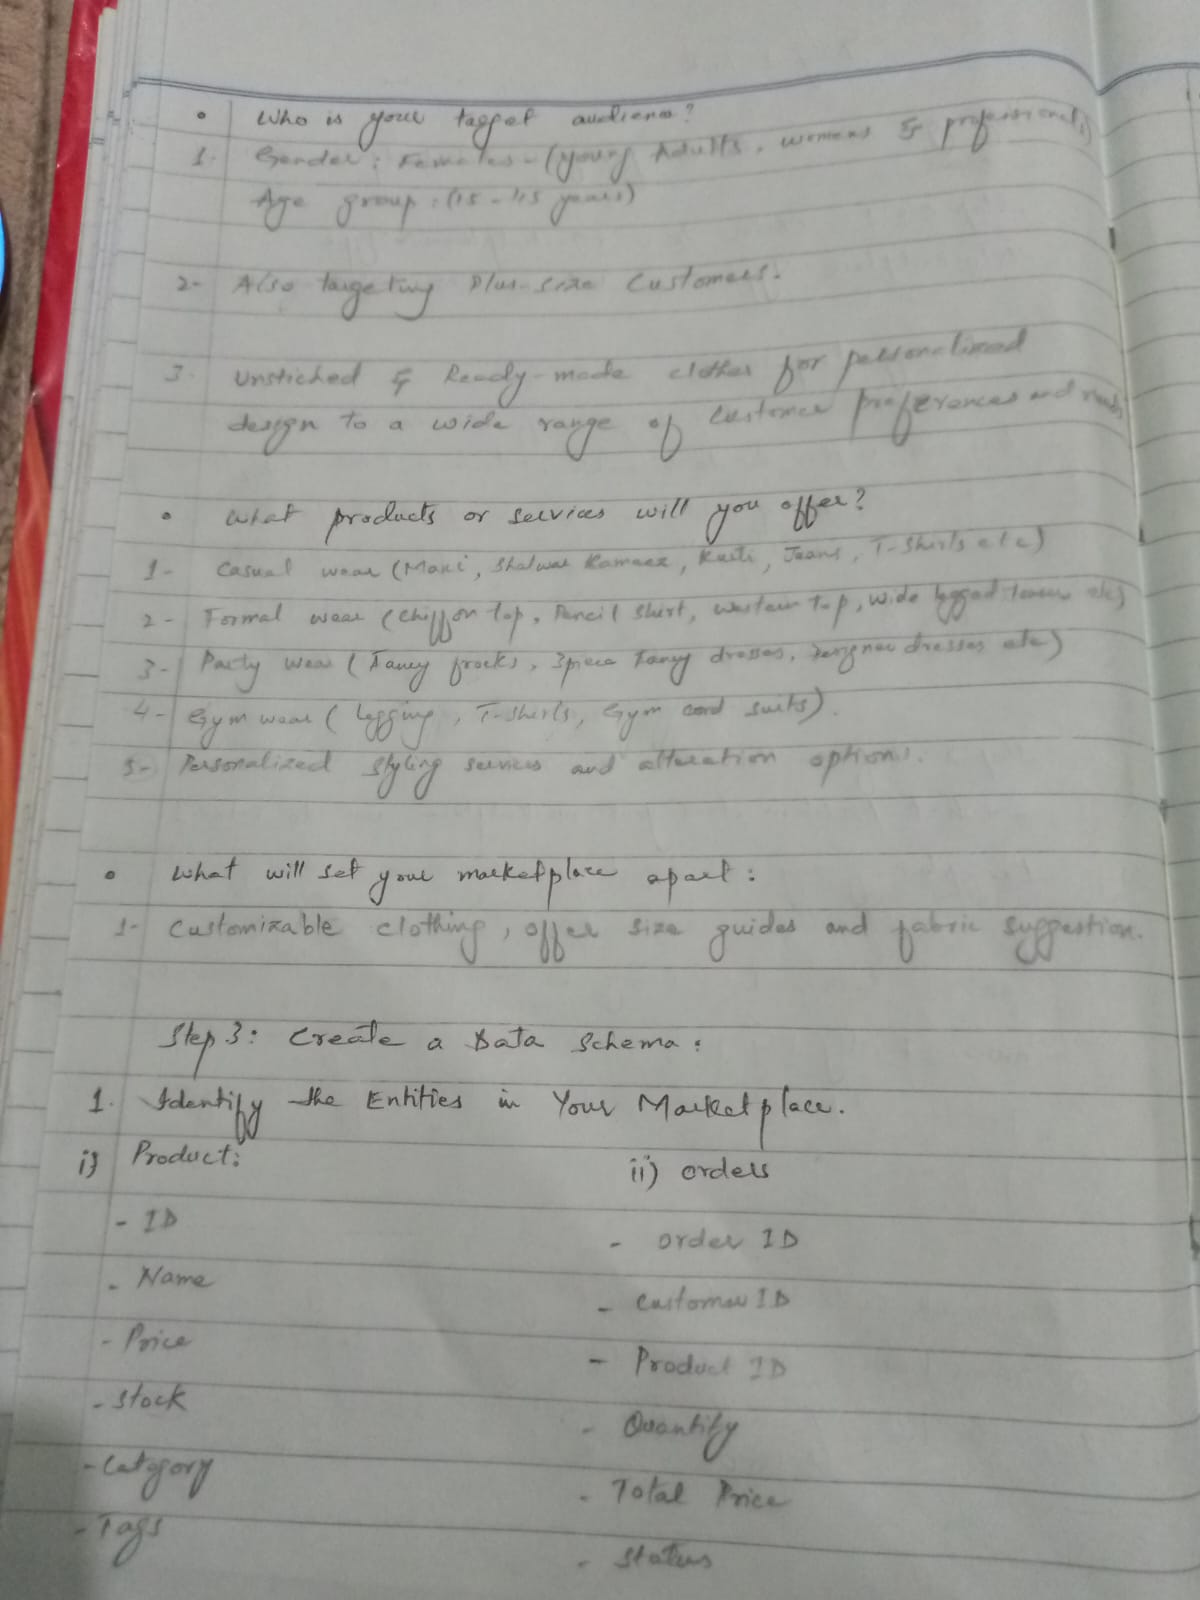 • Who is your target audience?
1- Gender: Females - (young Adults, womens & professionals)
Age group: (15 - 45 years)
2- Also targeting Plus-size Customers.
3- Unstiched & Ready-made clothes for personalized
design to a wide range of customer preferences and needs
• What products or services will you offer?
1- Casual wear (Maxi, Shalwar Kameez, Kurti, Jeans, T-Shirts etc)
2- Formal wear (Chiffon top, Pencil Shirt, western top, wide legged trouser etc)
3- Party wear (Fancy frocks, 3piece fancy dresses, designer dresses etc)
4- Gym wear (legging, T-shirts, Gym cord suits).
5- Personalized styling services and alteration options.
• What will set your marketplace apart:
1- Customizable clothing, offer size guides and fabric suggestion.
Step 3: Create a Data Schema:
1. Identify the Entities in Your Marketplace.
i) Product:
- ID
- Name
- Price
- Stock
- Category
- Tags
ii) orders
- order ID
- Customer ID
- Product ID
- Quantity
- Total Price
- Status